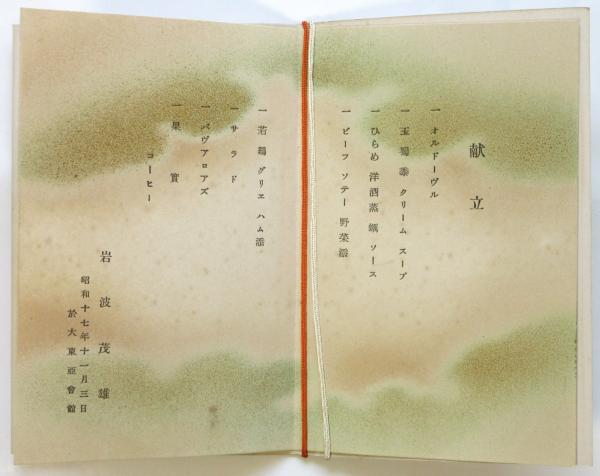 献立
一 オルドーヴル
一 玉蜀黍 クリーム スープ
一 ひらめ 洋酒蒸 蠣 ソース
一 ビーフ ソテー 野菜添
一 若鶏 グリエ ハム添
一 サラド
一 バヴアロアズ
一 果實
コーヒー
岩波茂雄
昭和十七年十一月三日
於大東亞會館